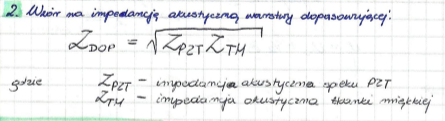 2. Wzór na impedancję akustyczną warstwy dopasowującej:
Z_DOP = √(Z_PZT Z_TM)
gdzie Z_PZT - impedancja akustyczna spieku PZT
Z_TM - impedancja akustyczna tkanki miękkiej